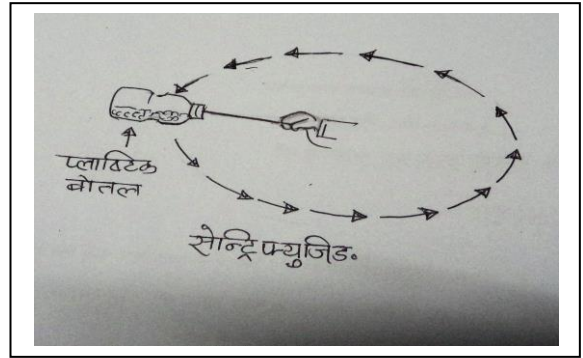 प्लाष्टिक
बोतल
सेन्ट्रिफ्युजिड.